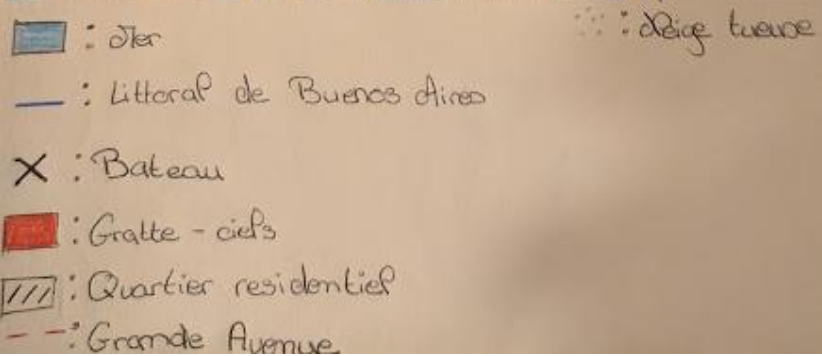 : Mer
: Neige tueuse
: Littoral de Buenos Aires
: Bateau
: Gratte-ciels
: Quartier residentiel
: Grande Avenue